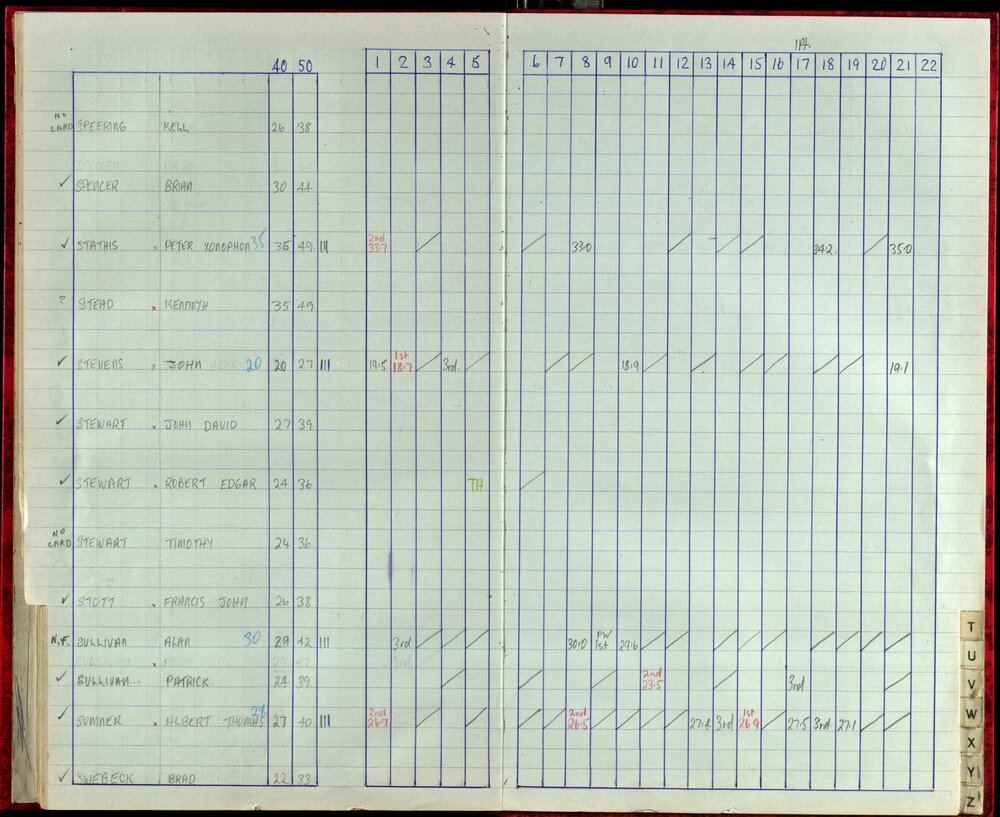 1Pt.
40 50 1 2 3 4 5 6 7 8 9 10 11 12 13 14 15 16 17 18 19 20 21 22
NO CARD SPEERING KELL 26 38
✓ SPENCER BRIAN 30 44
✓ STATHIS × PETER XONOPHON 35 35 49 III 2nd 33.7 / / 33.0 / / / 34.2. / 35.0
? STEAD × KENNETH 35 49
✓ STEVENS × JOHN HENRY 20 20 27 III 19.5 1st 18.7 / 3rd. / / / 18.9 / / / / / / 19.1
✓ STEWART × JOHN DAVID 27 39
✓ STEWART × ROBERT EDGAR 24 36 TH /
NO CARD STEWART TIMOTHY 24 36.
✓ STOTT × FRANCIS JOHN 26 38
N.F. SULLIVAN ALAN 30 29 42 III 3rd / / / 30.0 FW 1st 29.6 / / / / / / / /
✓ SULLIVAN × PATRICK 24 39 / / / 2nd 23.5 / 3rd /
✓ SUMNER × ALBERT THOMAS 28 27 40 III 2nd 26.7 / / / / 2nd 26.5 / / / / 27.4 3rd 1st 26.9 / 27.5 3rd 27.1 / /
✓ SWEBECK BRAD 22 33
T
U
V
W
X
Y
Z